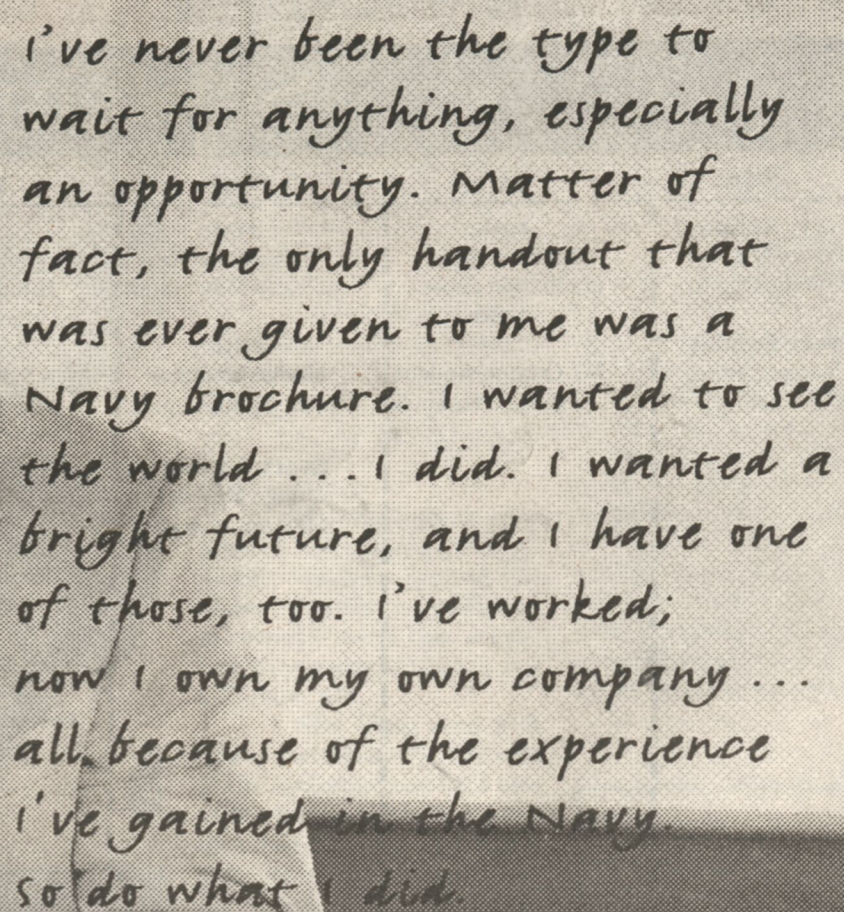 I've never been the type to
wait for anything, especially
an opportunity. Matter of
fact, the only handout that
was ever given to me was a
Navy brochure. I wanted to see
the world ...I did. I wanted a
bright future, and I have one
of those, too. I've worked;
now I own my own company ...
all because of the experience
I've gained in the Navy.
So do what I did.